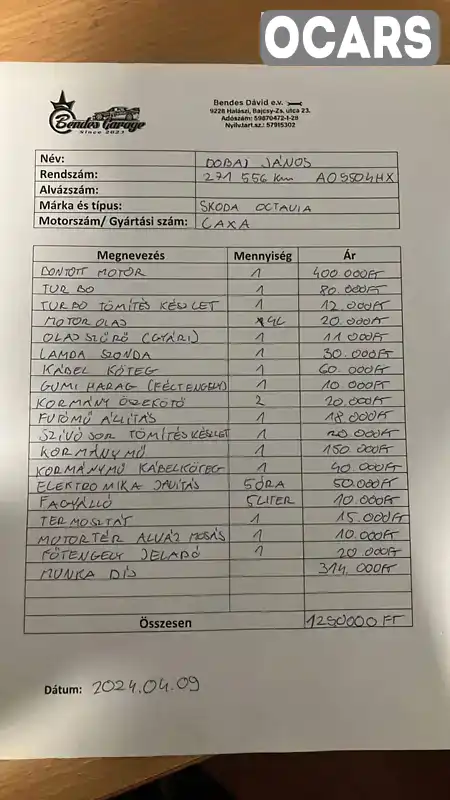 OCARS
Bendes Dávid e.v.
9228 Halászi, Bajcsy-Zs. utca 23.
Adószám: 59870472-1-28
Nyilv.tart.sz.: 57915302
Bendes Garage
Since 2023
Név: DOBAI JÁNOS
Rendszám: 271 556 km AO9504HX
Alvázszám:
Márka és típus: SKODA OCTAVIA
Motorszám/ Gyártási szám: CAXA
Megnevezés Mennyiség Ár
BONTOTT MOTOR 1 400.000FT
TURBO 1 80.000FT
TURBO TÖMÍTÉS KÉSZLET 1 12.000FT
MOTOROLAJ 4L 20.000FT
OLAJSZŰRŐ (GYÁRI) 1 11000FT
LAMDA SZONDA 1 30.000FT
KÁBEL KÖTEG 1 60.000FT
GUMI HARAG (FÉLTENGELY) 1 10.000FT
KORMÁNY ÖSZEKÖTŐ 2 20.000FT
FUTÓMŰ ÁLLITÁS 1 18.000FT
SZIVÓ SOR TÖMÍTÉS KÉSZLET 1 20 000FT
KORMÁNYMŰ 1 150.000FT
KORMÁNYMŰ KÁBELKÖTEG 1 40.000FT
ELEKTROMIKA JAVITÁS 5ÓRA 50.000FT
FAGYÁLLÓ 5LITER 10.000FT
TERMOSZTÁT 1 15.000FT
MOTORTÉR ALVÁZ MOSÁS 1 10.000FT
FŐTENGELY JELADÓ 1 20.000FT
MUNKA DIJ 314.000FT
Összesen 1290000 FT
Dátum: 2024.04.09